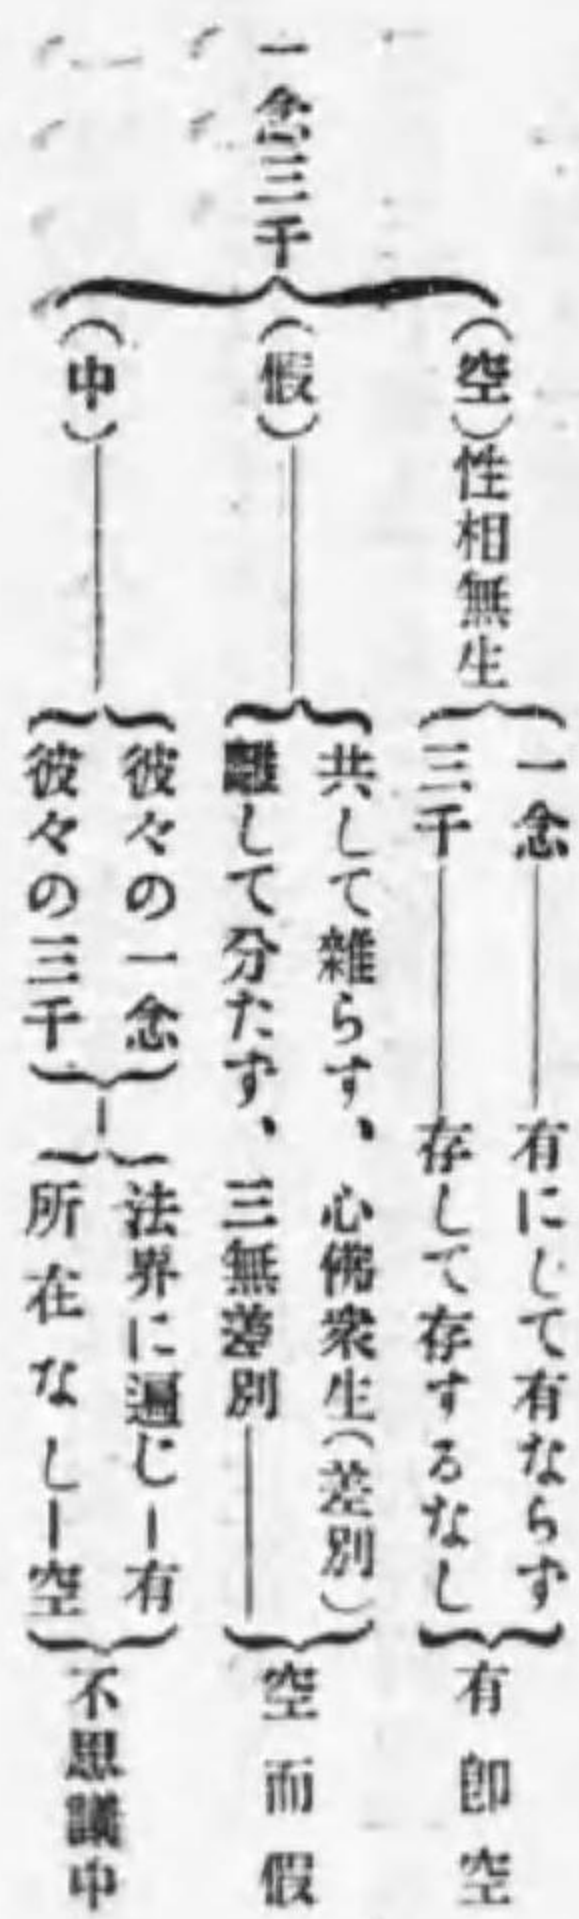 一念三千
(空)性相無生
一念――有にして有ならず
三千――存して存するなし
有卽空
(假)――
共して雜らず、心佛衆生(差別)
離して分たず、三無差別――
空而假
(中)――
彼々の一念
彼々の三千
法界に遍じ―有
所在なし―空
不思議中